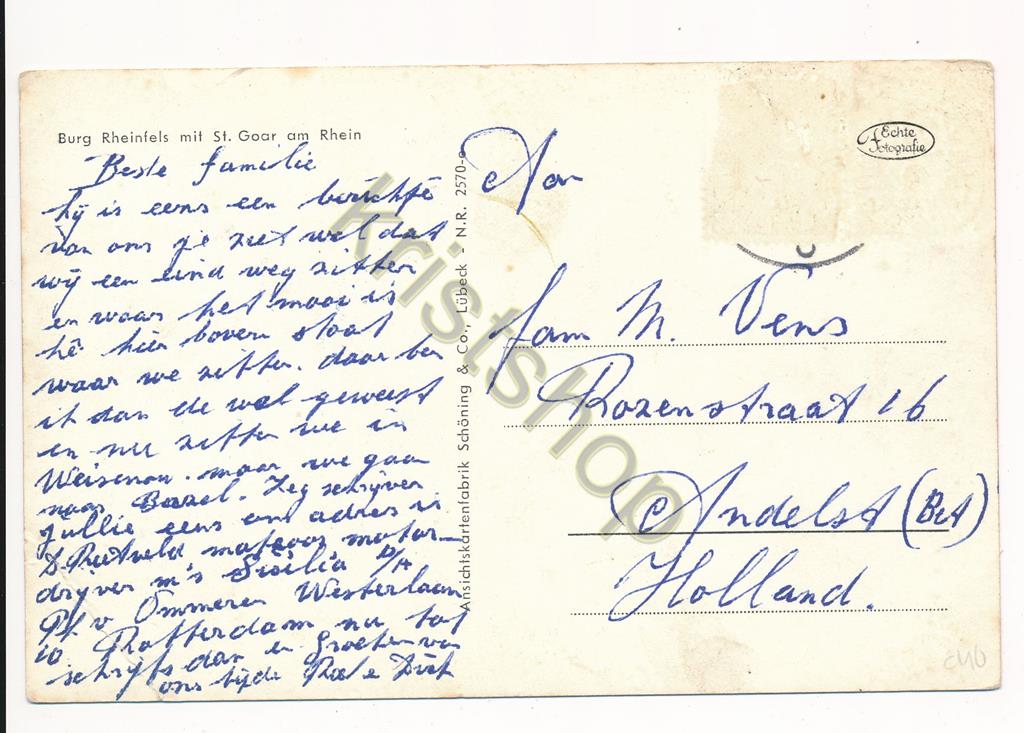 Burg Rheinfels mit St. Goar am Rhein
Beste familie
hij is eens een berichtje
van ons je ziet wel dat
wij een eind weg zitten
en waar het mooi is
hê hier boven staat
waar we zitten. daar ben
it dan de wel geweest
en nu zitten we in
Weisenau. maar we gaan
naar Bazel. Zeg schrijven
jullie eens ons adres is
D. Rietveld matroos motor-
drijver m's Sicilia p/A
Ph v Ommeren Westerlaan
10 Rotterdam nu tot
schrijfs dan en Groeten van
ons bijde Roel e Dirk
Ansichtskartenfabrik Schöning & Co., Lübeck - N.R. 2570-e
Echte
Fotografie
Aan
fam M. Vens
Rozenstraat 16
Andelst (Bet)
Holland.
kristshop